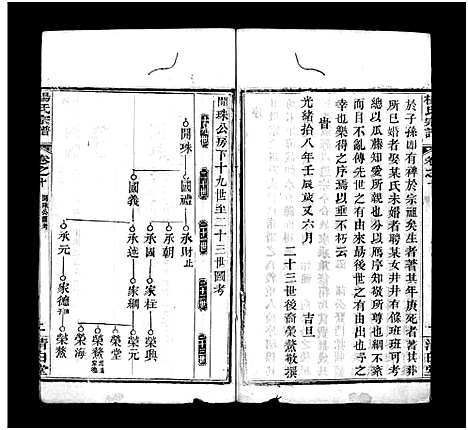 於子孫即有裨於宗祖矣生者著其年庚死者著其
所已婚者娶某氏未婚者聘某女井井有條班班可考
總以瓜藤知愛所親也以鴈序知敬所尊也由此
而不亂傳先世之有由來勗後世之有由出也予之
幸也樂得之序焉以垂不朽云
旹
光緒拾八年壬辰歲又六月 吉旦
二十三世後裔榮鰲敬撰
楊氏宗譜
卷之十
清白堂
開珠公房下十九世至二十三世圖考
十九世
二十世
二十一世
二十二世
二十三世
開珠
國禮
國義
承財止
承朝
承國
承進
承元
家柱
家綱
家德
榮興
榮元
榮堂
榮鰲
榮海
榮鰲
楊氏宗譜
卷之十
開珠公圖考
清白堂